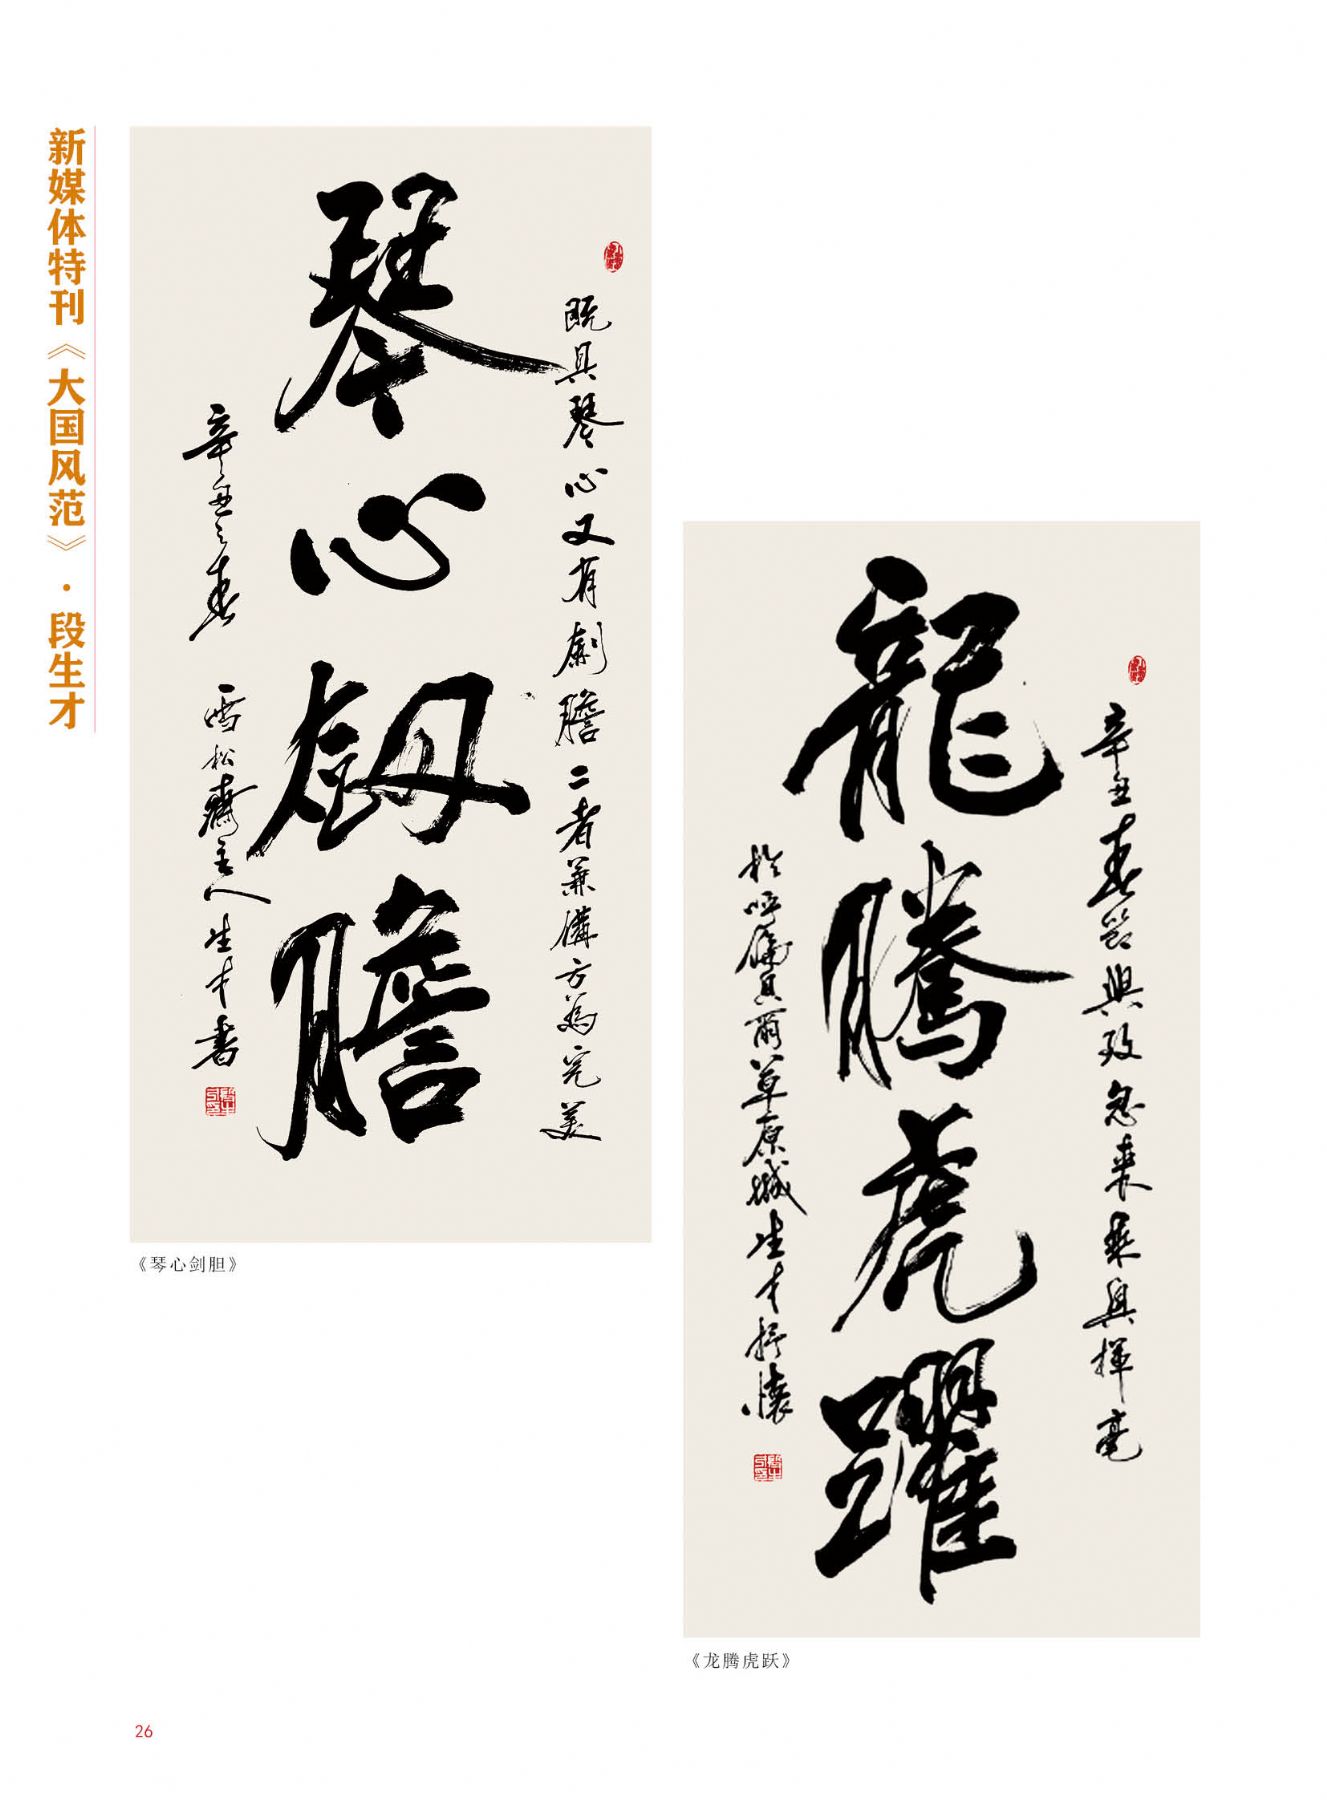 新媒体特刊《大国风范》·段生才
既具琴心又有剑膽二者兼備方為完美
琴心劍膽
辛丑之春
雪松齋主人生才書
《琴心剑胆》
辛丑春節興致忽來乘興揮毫
龍騰虎躍
於呼倫貝爾草原城生才抒懷
《龙腾虎跃》
26